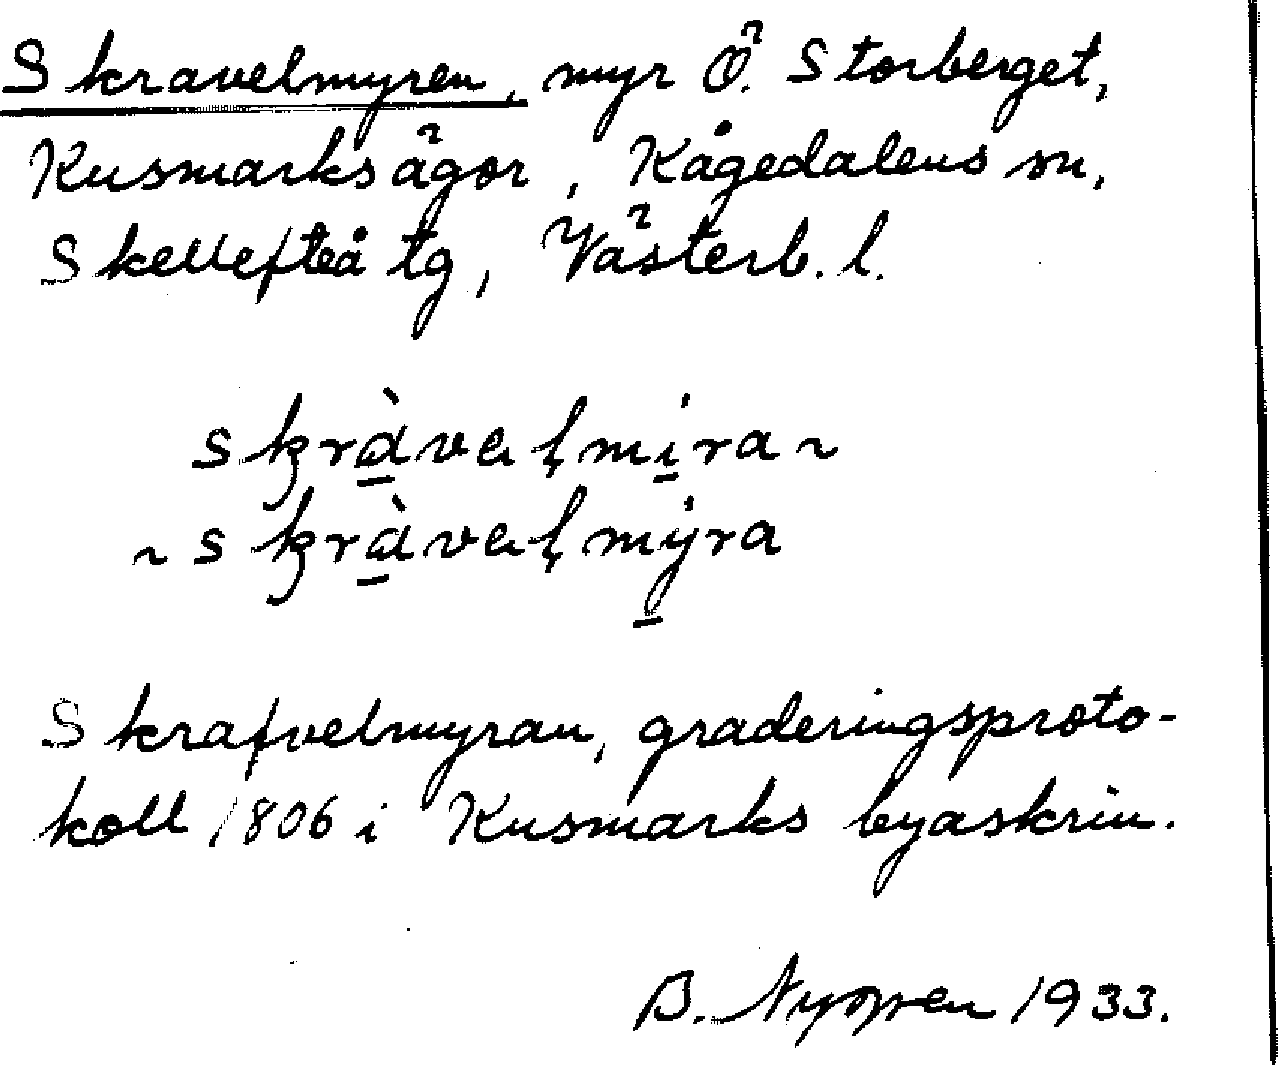 Skravelmyren, myr Ö. Storberget,
Kusmarks ägor, Kågedalens sn,
Skellefteå tg, Västerb. l.
skràvaḷmíra ~
~ skràvaḷmýra
Skrafvelmyran, graderingsproto-
koll 1806 i Kusmarks byaskrin.
B. 1933.